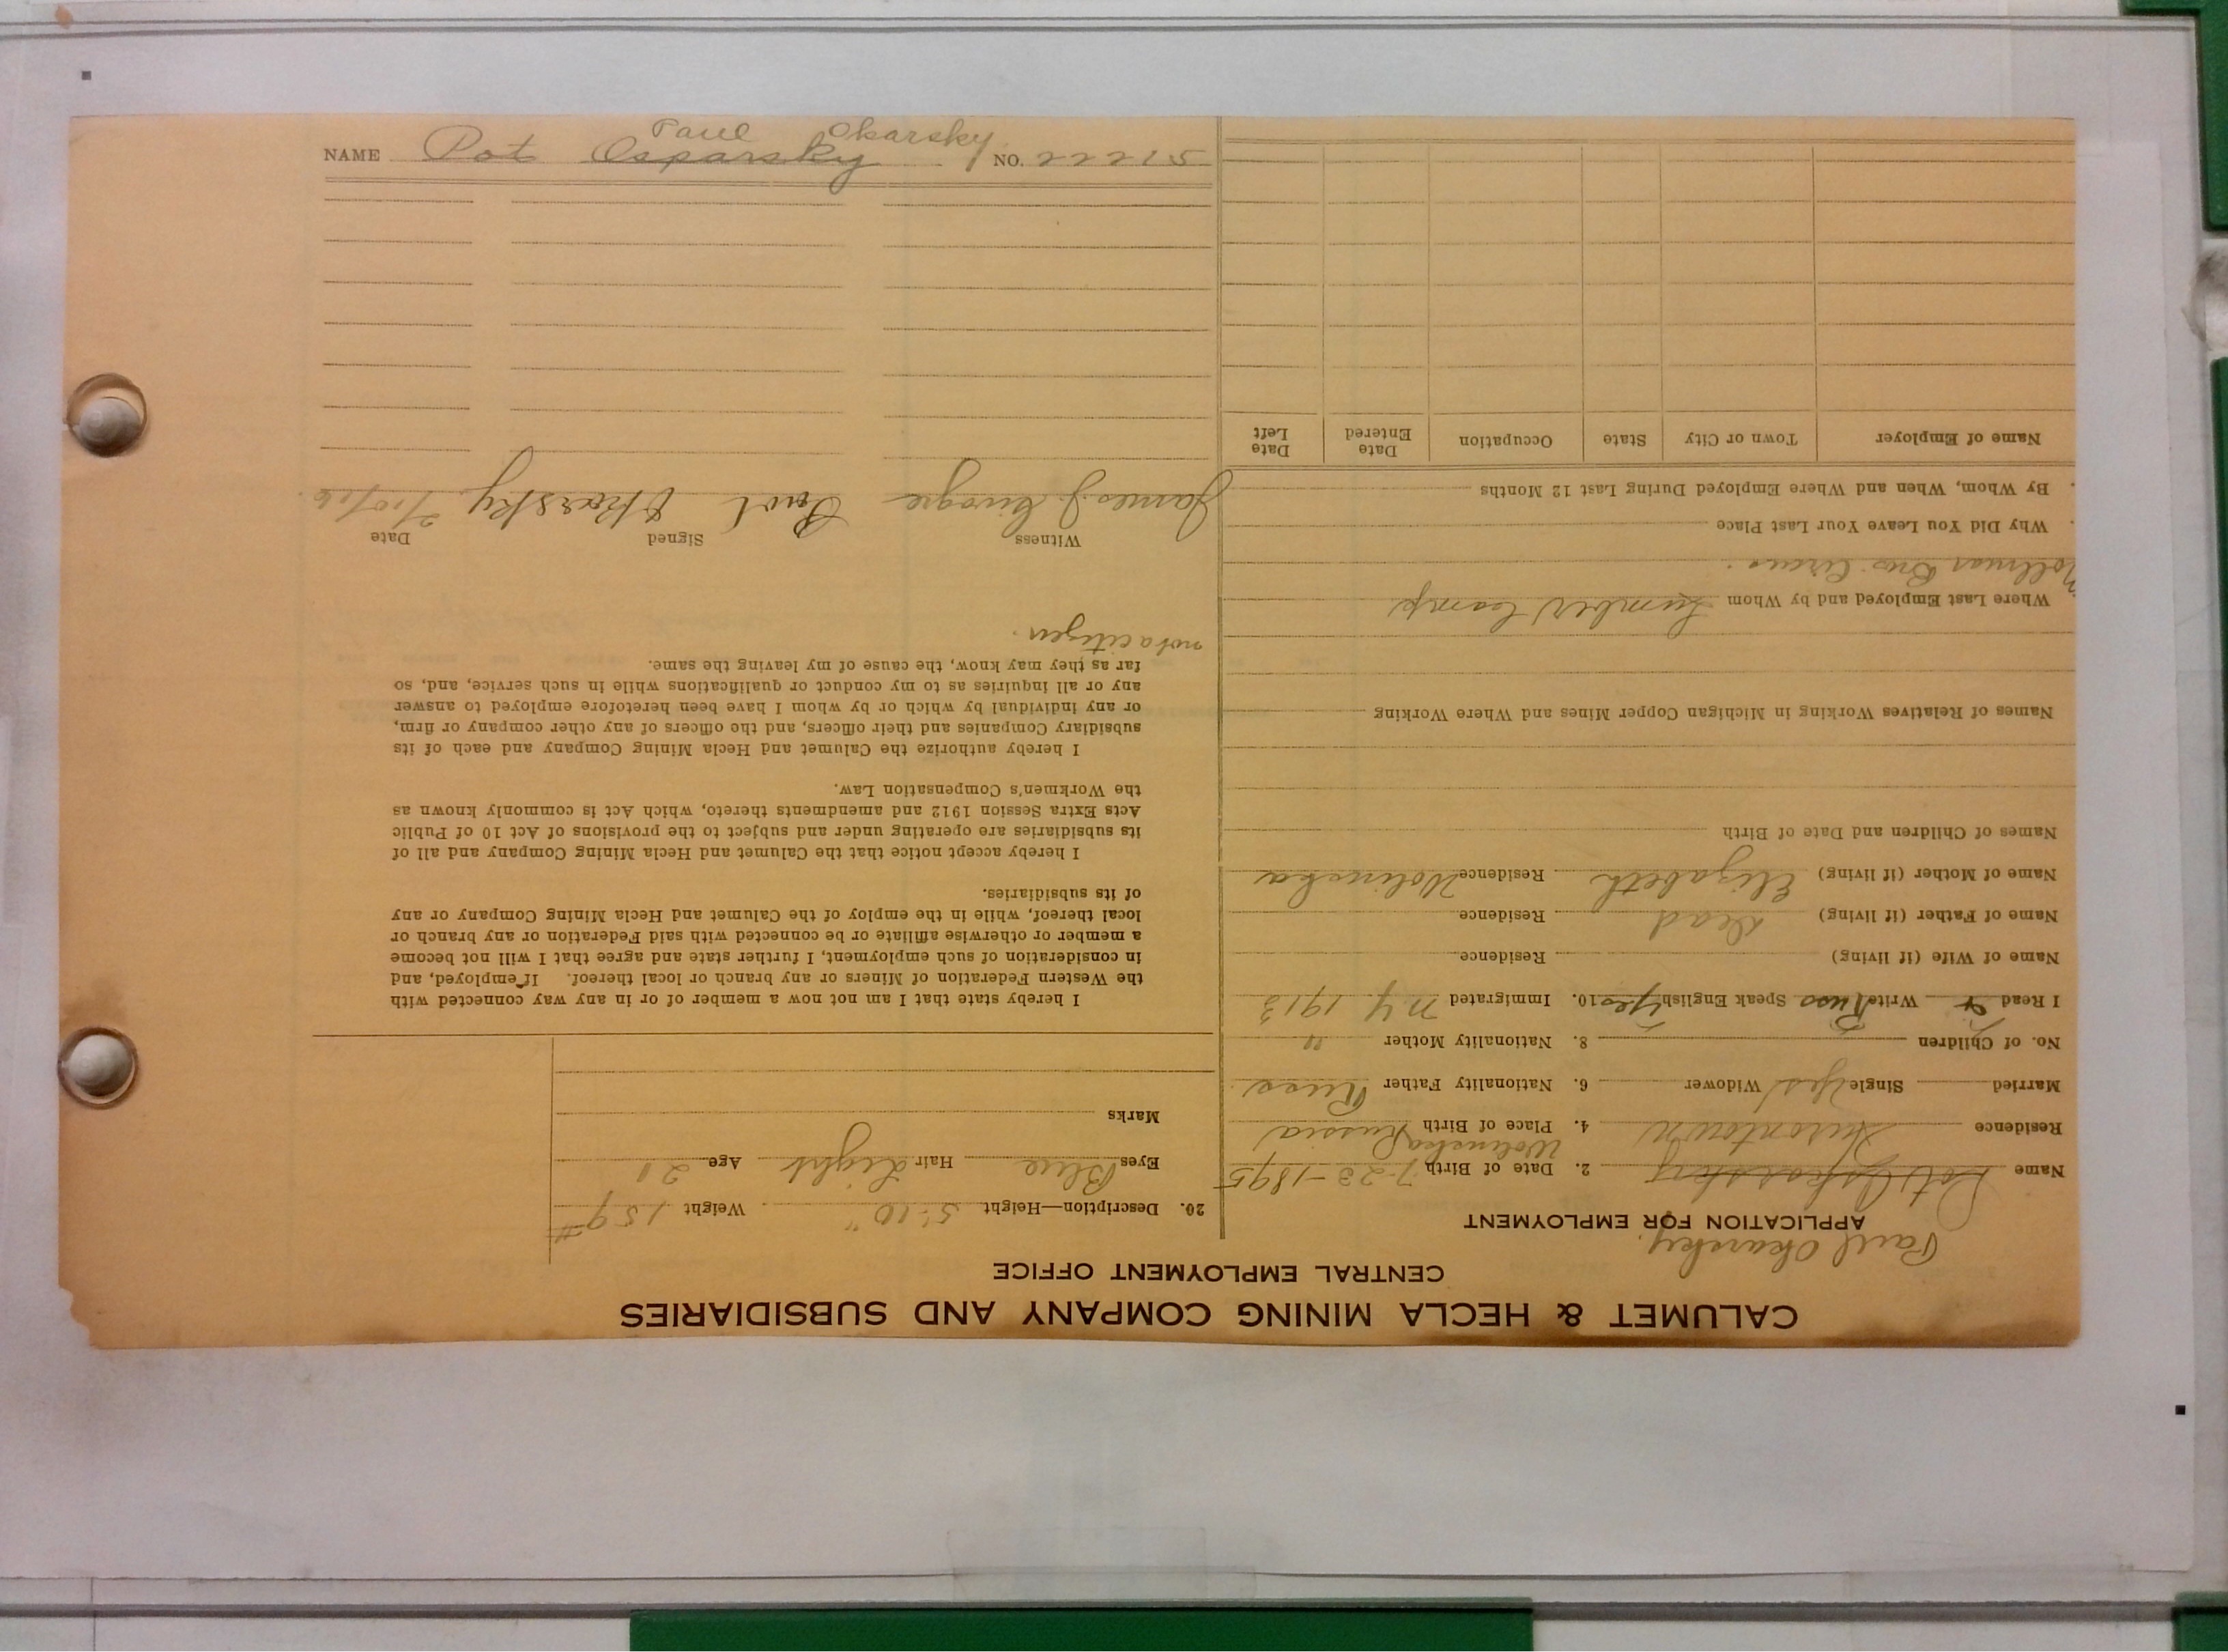 NAME Pot Osparsky Paul Okarsky NO. 22215
CALUMET & HECLA MINING COMPANY AND SUBSIDIARIES
CENTRAL EMPLOYMENT OFFICE
Paul Okarsky
APPLICATION FOR EMPLOYMENT
Name Pot 2. Date of Birth 7-23-1895
Residence Hurontown 4. Place of Birth Wolinska Russia
Married Single Yes Widower 6. Nationality Father Russ
No. of Children 8. Nationality Mother "
I Read & Write Russ Speak English Yes 10. Immigrated N.Y. 1913
Name of Wife (if living) Residence
Name of Father (if living) Dead Residence
Name of Mother (if living) Elizabeth Residence Wolinska
Names of Children and Date of Birth
Names of Relatives Working in Michigan Copper Mines and Where Working
Where Last Employed and by Whom Lumber Camp
Bros. Circus.
Why Did You Leave Your Last Place
By Whom, When and Where Employed During Last 12 Months
Name of Employer Town or City State Occupation Date Entered Date Left
20. Description—Height 5' 10" Weight 159#
Eyes Blue Hair Light Age 21
Marks
I hereby state that I am not now a member of or in any way connected with
the Western Federation of Miners or any branch or local thereof. If employed, and
in consideration of such employment, I further state and agree that I will not become
a member or otherwise affiliate or be connected with said Federation or any branch or
local thereof, while in the employ of the Calumet and Hecla Mining Company or any
of its subsidiaries.
I hereby accept notice that the Calumet and Hecla Mining Company and all of
its subsidiaries are operating under and subject to the provisions of Act 10 of Public
Acts Extra Session 1912 and amendments thereto, which Act is commonly known as
the Workmen's Compensation Law.
I hereby authorize the Calumet and Hecla Mining Company and each of its
subsidiary Companies and their officers, and the officers of any other company or firm,
or any individual by which or by whom I have been heretofore employed to answer
any or all inquiries as to my conduct or qualifications while in such service, and, so
far as they may know, the cause of my leaving the same.
not a citizen.
Witness Signed Date
James J. Paul Okarsky